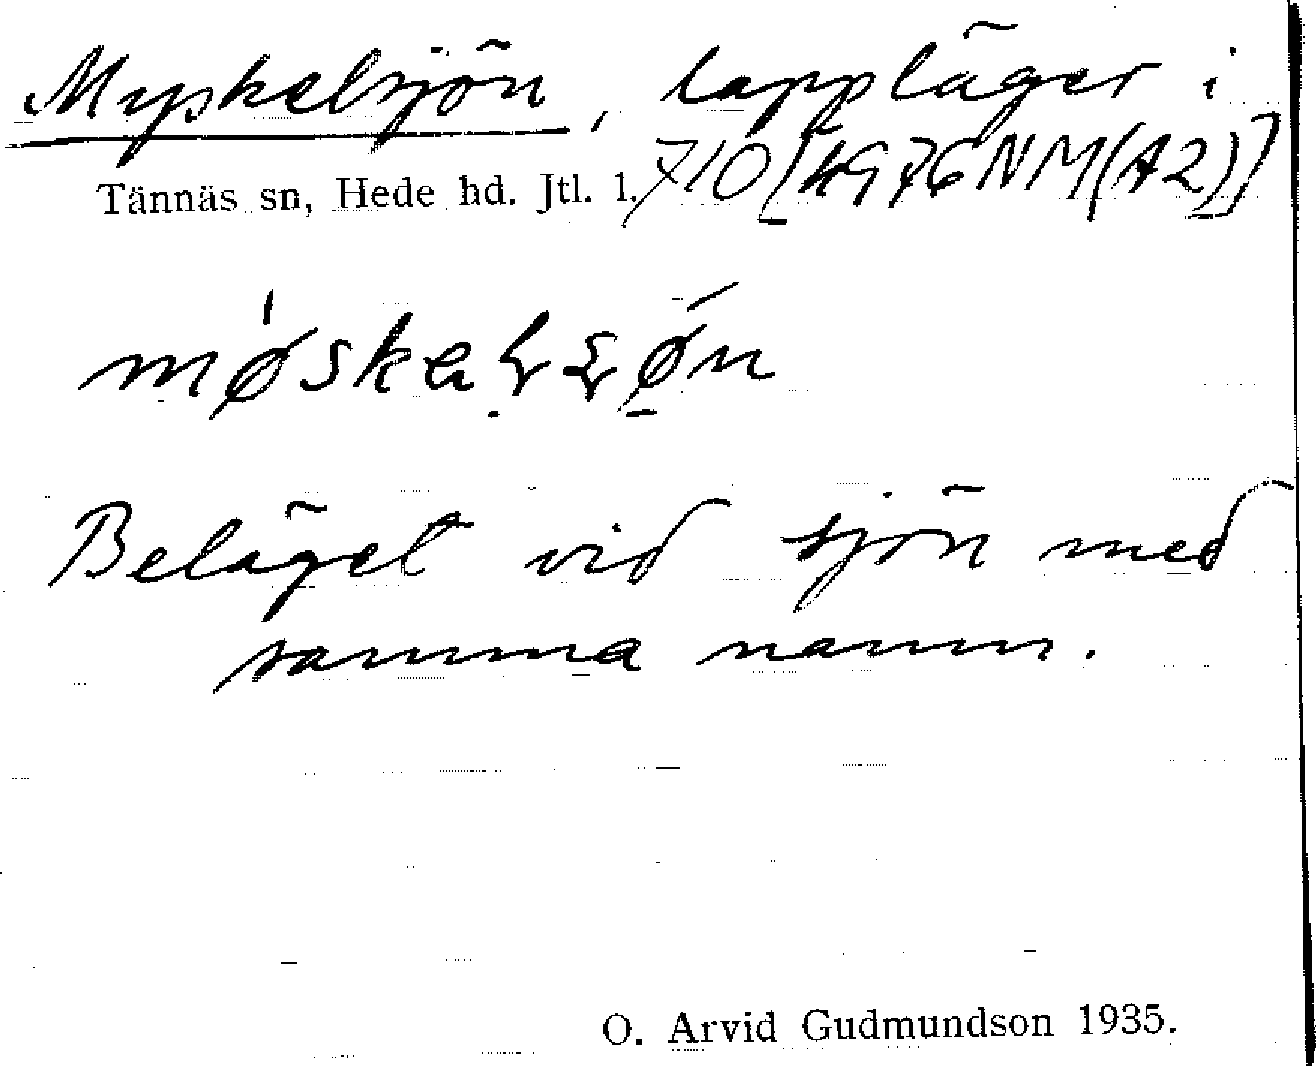 Myskelsjön, lappläger i
Tännäs sn, Hede hd. Jtl. l. 710 [4976NM(A2)]
Beläget vid sjön med
samma namn.
O. Arvid Gudmundson 1935.